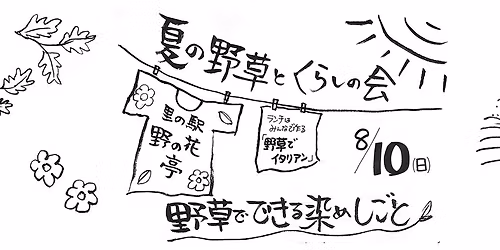 夏の野草とくらしの会
里の駅
野の花
亭
ランチは
みんなで作る
「野草で
イタリアン」
8/10(日)
野草でできる染めしごと